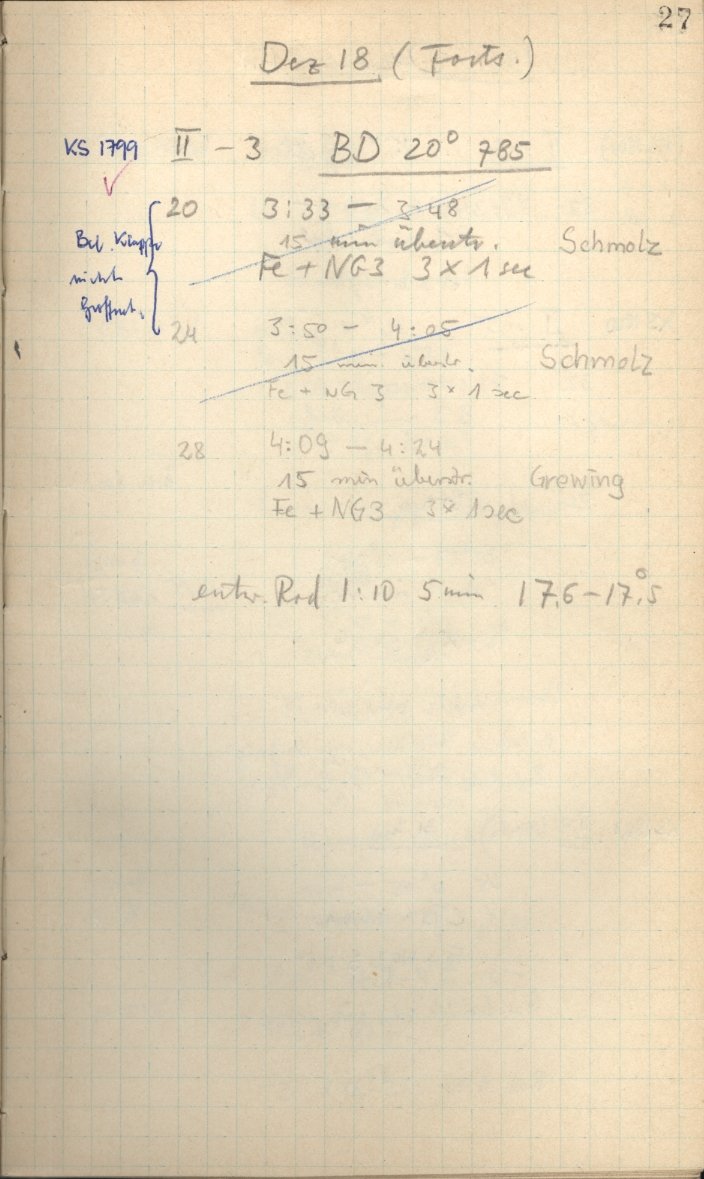 27
Dez 18 (Forts.)
KS 1799 II - 3 BD 20° 785
20 3:33 - 3:48
Bel. Klappe
nicht
geöffnet.
15 min überstr. Schmolz
Fe + NG3 3 × 1 sec
24 3:50 - 4:05
15 min. überstr. Schmolz
Fe + NG 3 3 × 1 sec
28 4:09 - 4:24
15 min überstr. Grewing
Fe + NG3 3 × 1 sec
entw. Rod 1:10 5 min 17,6 - 17,°5